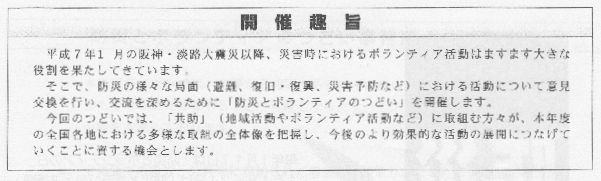 開催趣旨
平成7年1 月の阪神・淡路大震災以降、災害時におけるボランティア活動はますます大きな
役割を果たしてきています。
そこで、防災の様々な局面（避難、復旧・復興、災害予防など）における活動について意見
交換を行い、交流を深めるために「防災とボランティアのつどい」を開催します。
今回のつどいでは、「共助」（地域活動やボランティア活動など）に取組む方々が、本年度
の全国各地における多様な取組の全体像を把握し、今後のより効果的な活動の展開につなげて
いくことに資する機会とします。